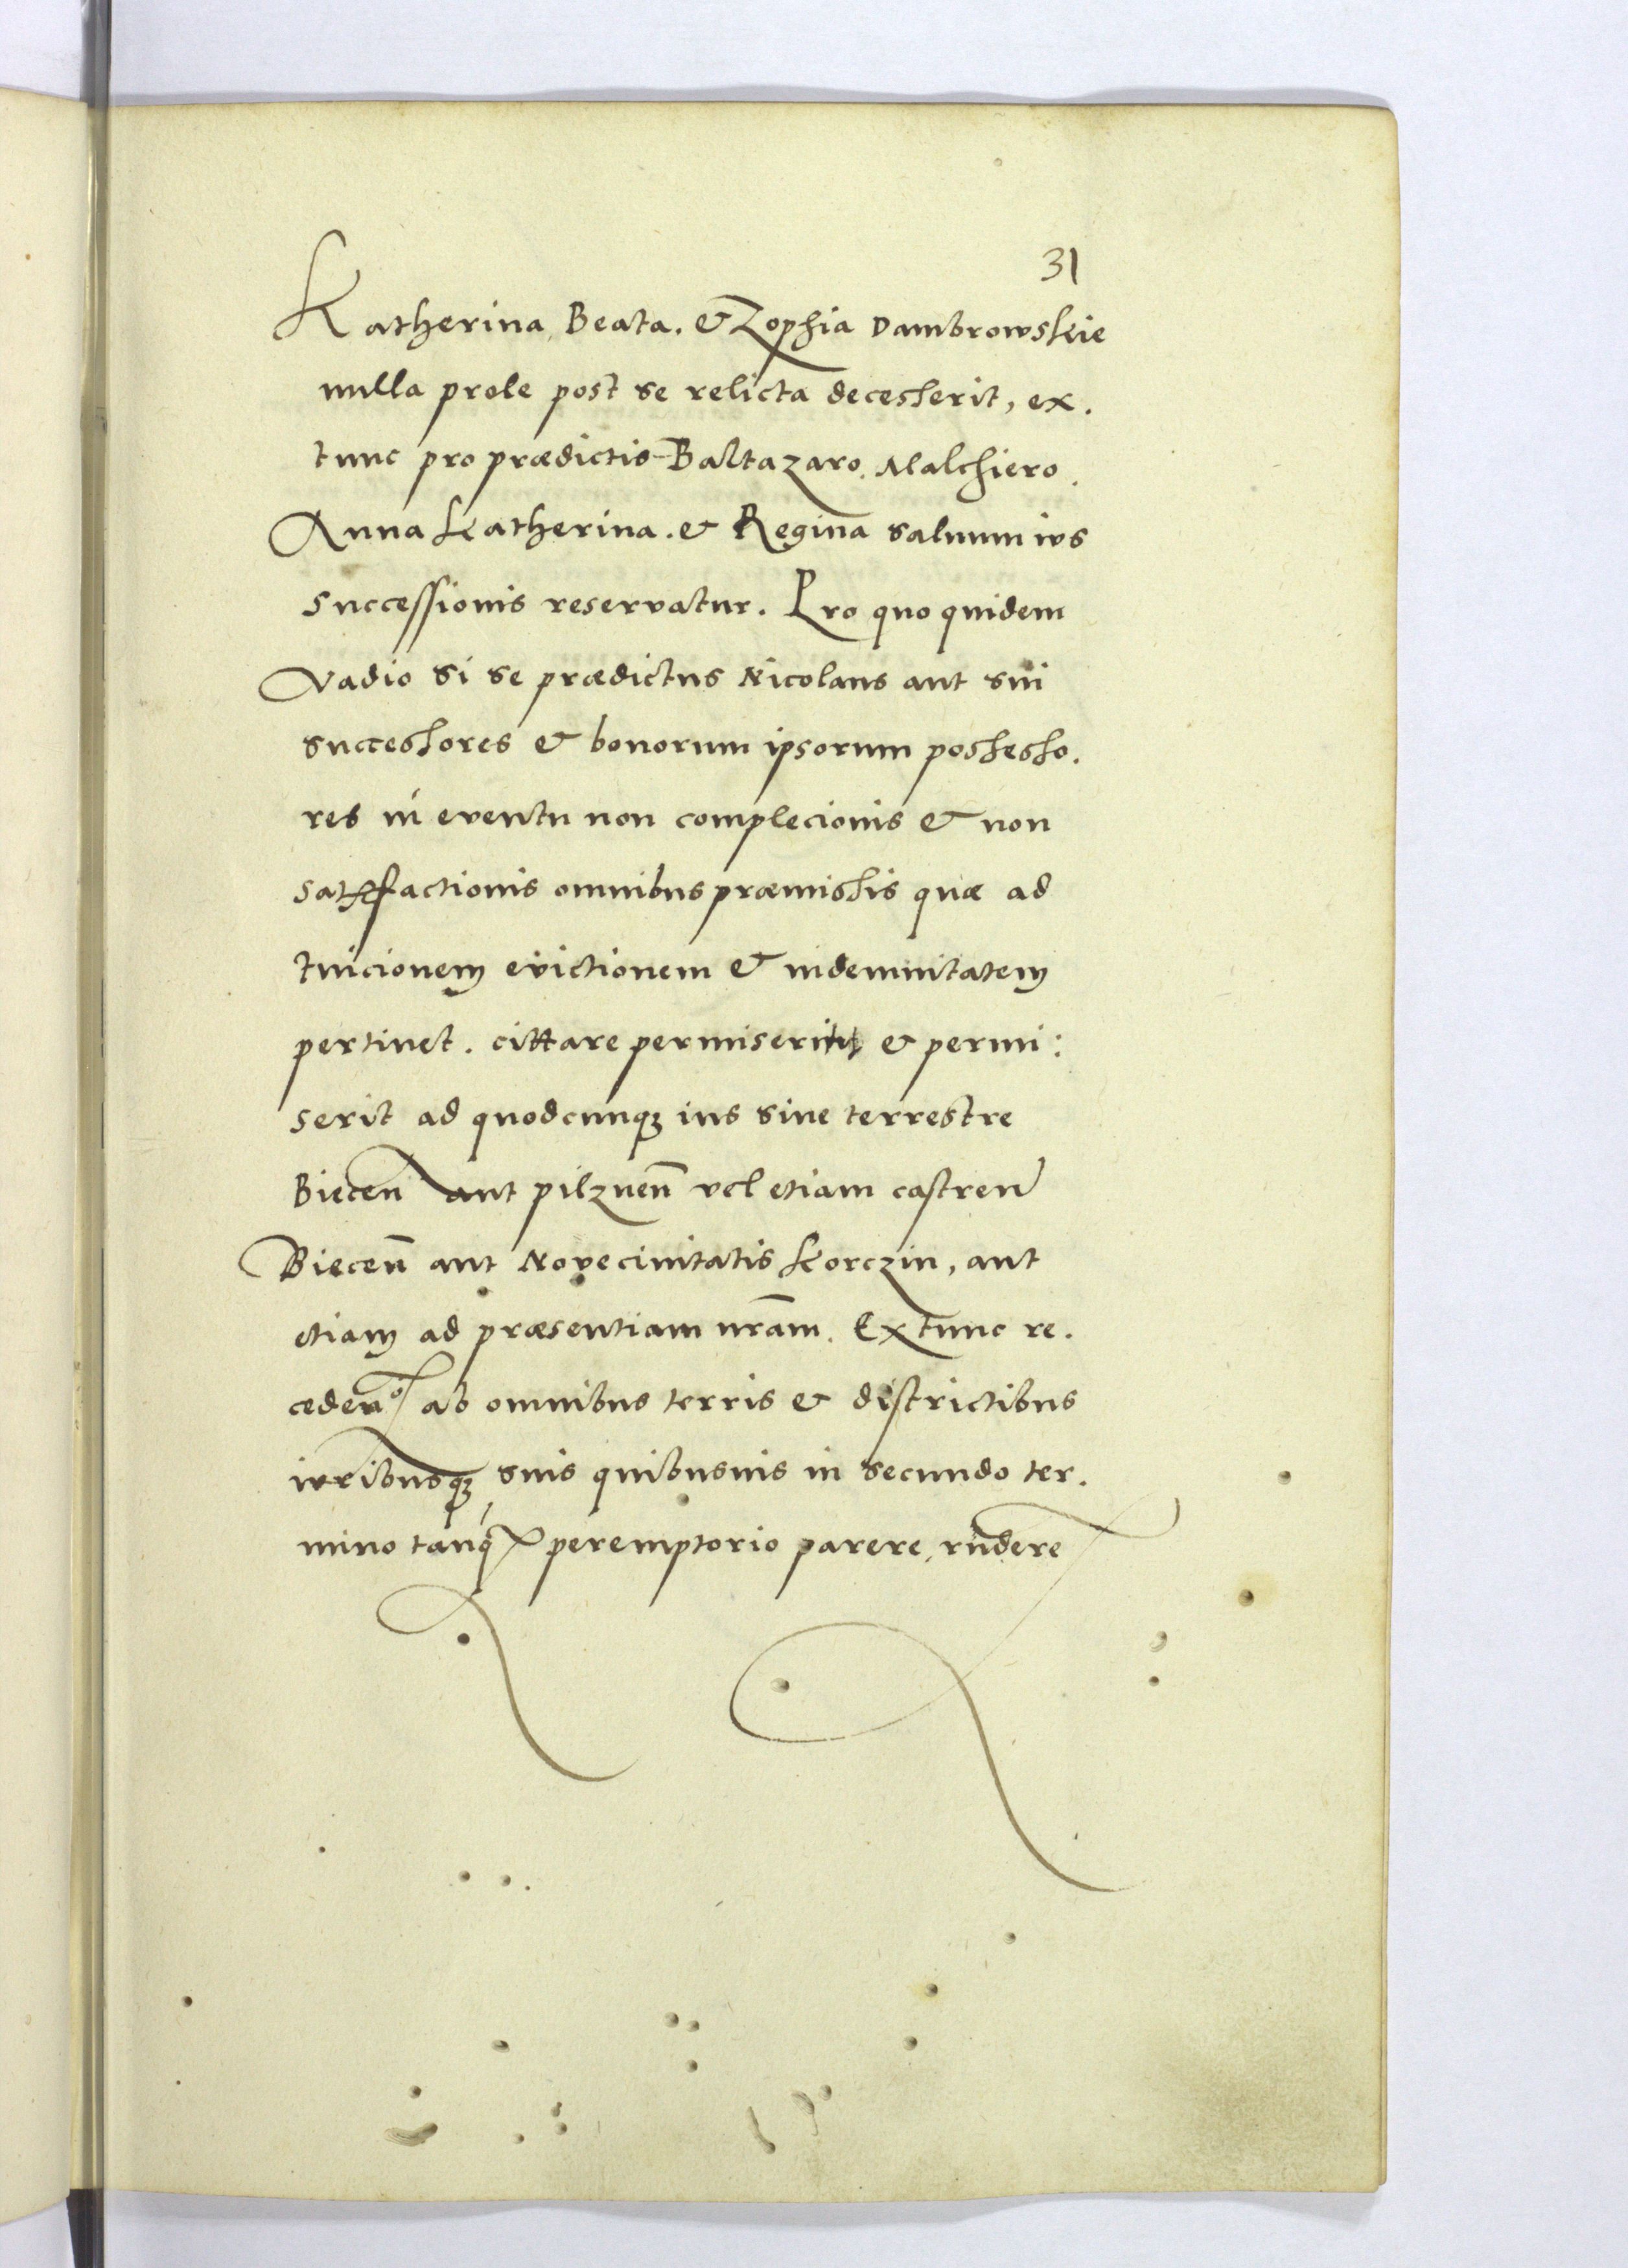 31
Katherina, Beata. & Zophia Dambrowskie
nulla prole post se relicta decesserit, ex.
tunc pro prædictis Baltazaro, Malchiero,
Anna Katherina. & Regina saluum ius
successionis reservatur. Pro quo quidem
Vadio si se prædictus Nicolaus aut sui
successores & bonorum ipsorum possesso.
res in eventu non complecionis & non
satisfactionis omnibus præmissis quæ ad
tuicionem evictionem & indemnitatem
pertinet. cittare permiserint & permi:
serit ad quodcunqꝫ ius siue terrestre
Biecen̄ aut pilznen̄ vel etiam castren̄
Biecen̄ aut Novecivitatis Korczin, aut
etiam ad præsentiam nr̄am. Ex tunc re.
ceden̄o ab omnibus terris & districtibus
iuribusqꝫ suis quibusuis in secundo ter.
mino tanq́ peremptorio parere, rn̄dere